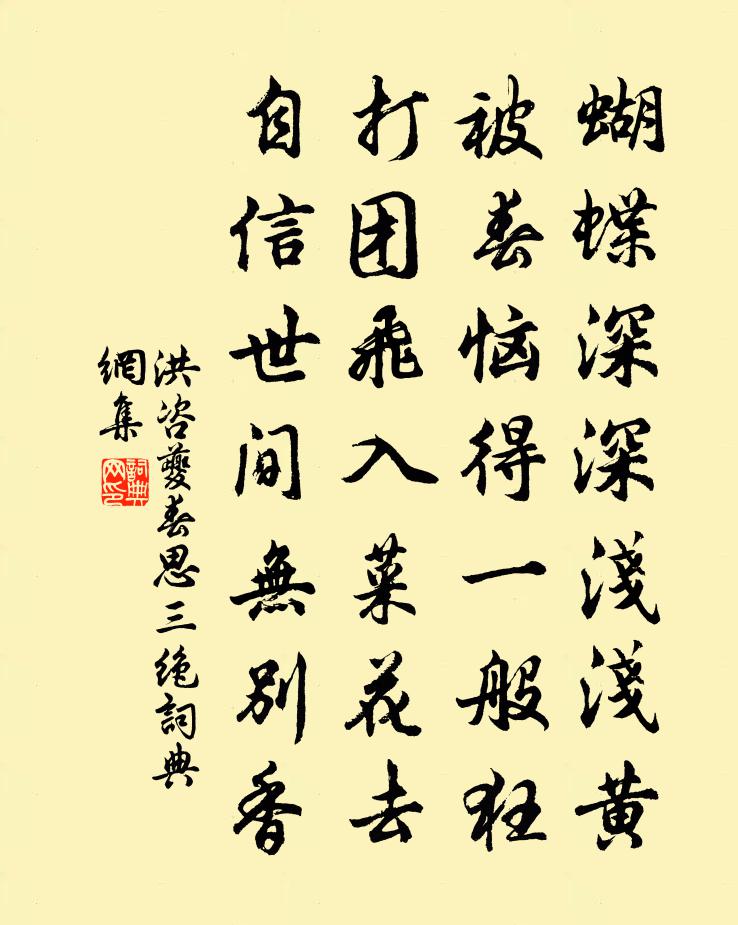 蝴蝶深深淺淺黄
被春恼得一般狂
打团飛入菜花去
自信世间無别香
洪咨夔春思三绝詞典
網集
詞典
网印